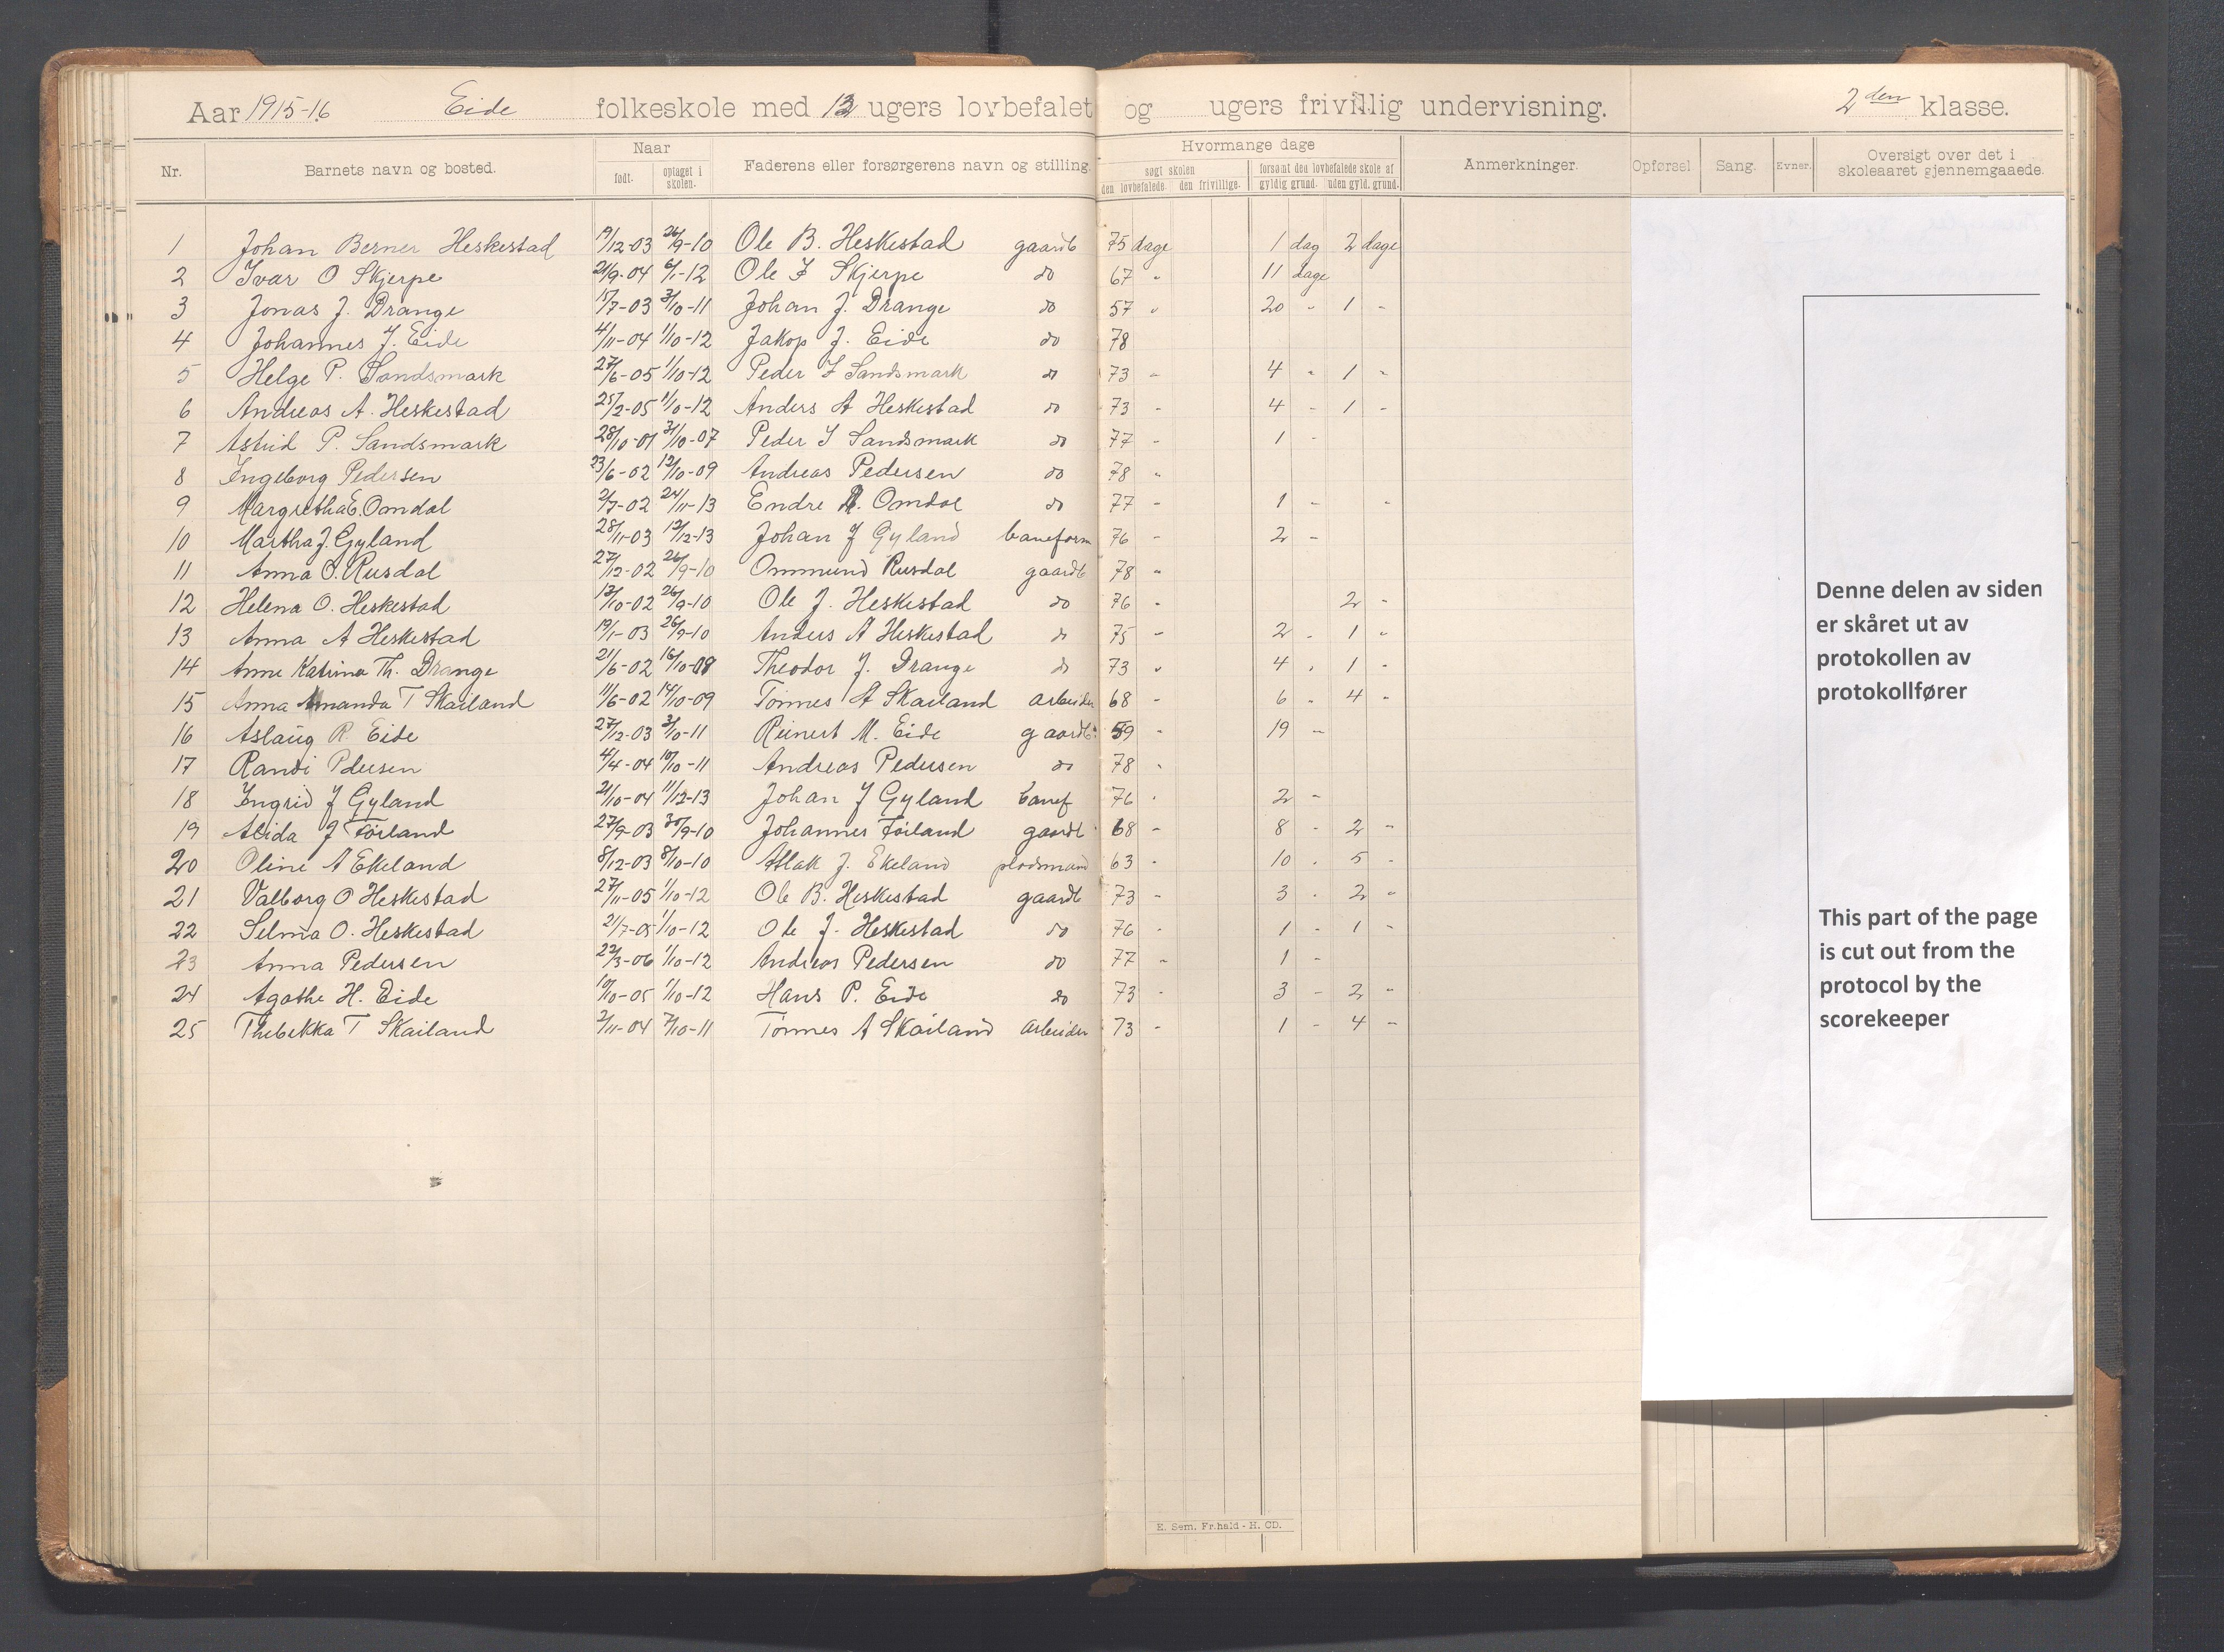 Aar 1915-16 Eide folkeskole med 13 ugers lovbefalet og ugers frivillig undervisning. 2den klasse.
Nr. Barnets navn og bosted. Naar født. optaget i skolen. Faderens eller forsørgerens navn og stilling. Hvormange dage søgt skolen den lovbefalede. den frivillige. forsømt den lovbefalede skole af gyldig grund. uden gyld. grund. Anmerkninger. Opførsel. Sang. Evner. Oversigt over det i skoleaaret gjennemgaaede.
1 Johan Berner Heskestad 19/12-03 26/9-10 Ole B. Heskestad gaardb 75 dage 1 dag 2 dage
2 Ivar O Skjerpe 21/9-04 6/1-12 Ole I Skjerpe do 67 " 11 dage
3 Jonas J. Drange 15/7-03 3/10-11 Johan J. Drange do 57 " 20 - 1 -
4 Johannes J. Eide 4/11-04 1/10-12 Jakop J. Eide do 78
5 Helge P. Sandsmark 27/6-05 1/10-12 Peder I Sandsmark do 73 - 4 - 1 -
6 Andreas A. Heskestad 25/2-05 1/10-12 Anders A Heskestad do 73 - 4 - 1 -
7 Astrid P. Sandsmark 28/10-01 31/10-07 Peder I Sandsmark do 77 - 1 -
8 Ingeborg Pedersen 23/6-02 12/10-09 Andreas Pedersen do 78 "
9 Margretha E. Omdal 2/7-02 24/11-13 Endre R. Omdal do 77 - 1 - -
10 Martha J. Gyland 28/11-03 12/12-13 Johan J Gyland baneform 76 - 2 -
11 Anna O. Rusdal 27/12-02 26/9-10 Ommund Rusdal gaardb 78 "
12 Helena O. Heskestad 13/10-02 26/9-10 Ole J. Heskestad do 76 - 2 -
13 Anna A Heskestad 19/1-03 26/9-10 Anders A Heskestad do 75 - 2 - 1 -
14 Anne Katrina Th. Drange 21/6-02 16/10-08 Theodor J. Drange do 73 " 4 - 1 -
15 Anna Amanda T Skailand 11/6-02 14/10-09 Tønnes A Skailand arbeider 68 - 6 - 4 -
16 Aslaug R. Eide 27/12-03 3/10-11 Reinert M. Eide gaardb. 59 - 19 -
17 Randi Pdersen 4/4-04 10/10-11 Andreas Pedersen do 78 -
18 Ingrid J Gyland 21/10-04 11/12-13 Johan J Gyland banef 76 - 2 -
19 Alida J Føiland 27/9-03 30/9-10 Johannes Føiland gaardb 68 - 8 - 2 -
20 Oline A Ekeland 8/12-03 8/10-10 Atlak J. Ekeland pladsmand 63 - 10 - 5 -
21 Valborg O Heskestad 27/11-05 1/10-12 Ole B. Heskestad gaardb 73 - 3 - 2 -
22 Selma O. Heskestad 21/7-05 1/10-12 Ole J. Heskestad do 76 - 1 - 1 -
23 Anna Pedersen 22/3-06 1/10-12 Andreas Pedersen do 77 - 1 -
24 Agathe H. Eide 10/10-05 1/10-12 Hans P. Eide do 73 - 3 - 2 -
25 Thebekka T Skailand 2/11-04 7/10-11 Tønnes A Skailand arbeider 73 - 1 - 4 -
Denne delen av siden
er skåret ut av
protokollen av
protokollfører
This part of the page
is cut out from the
protocol by the
scorekeeper
E. Sem. Fr.hald - H. CD.